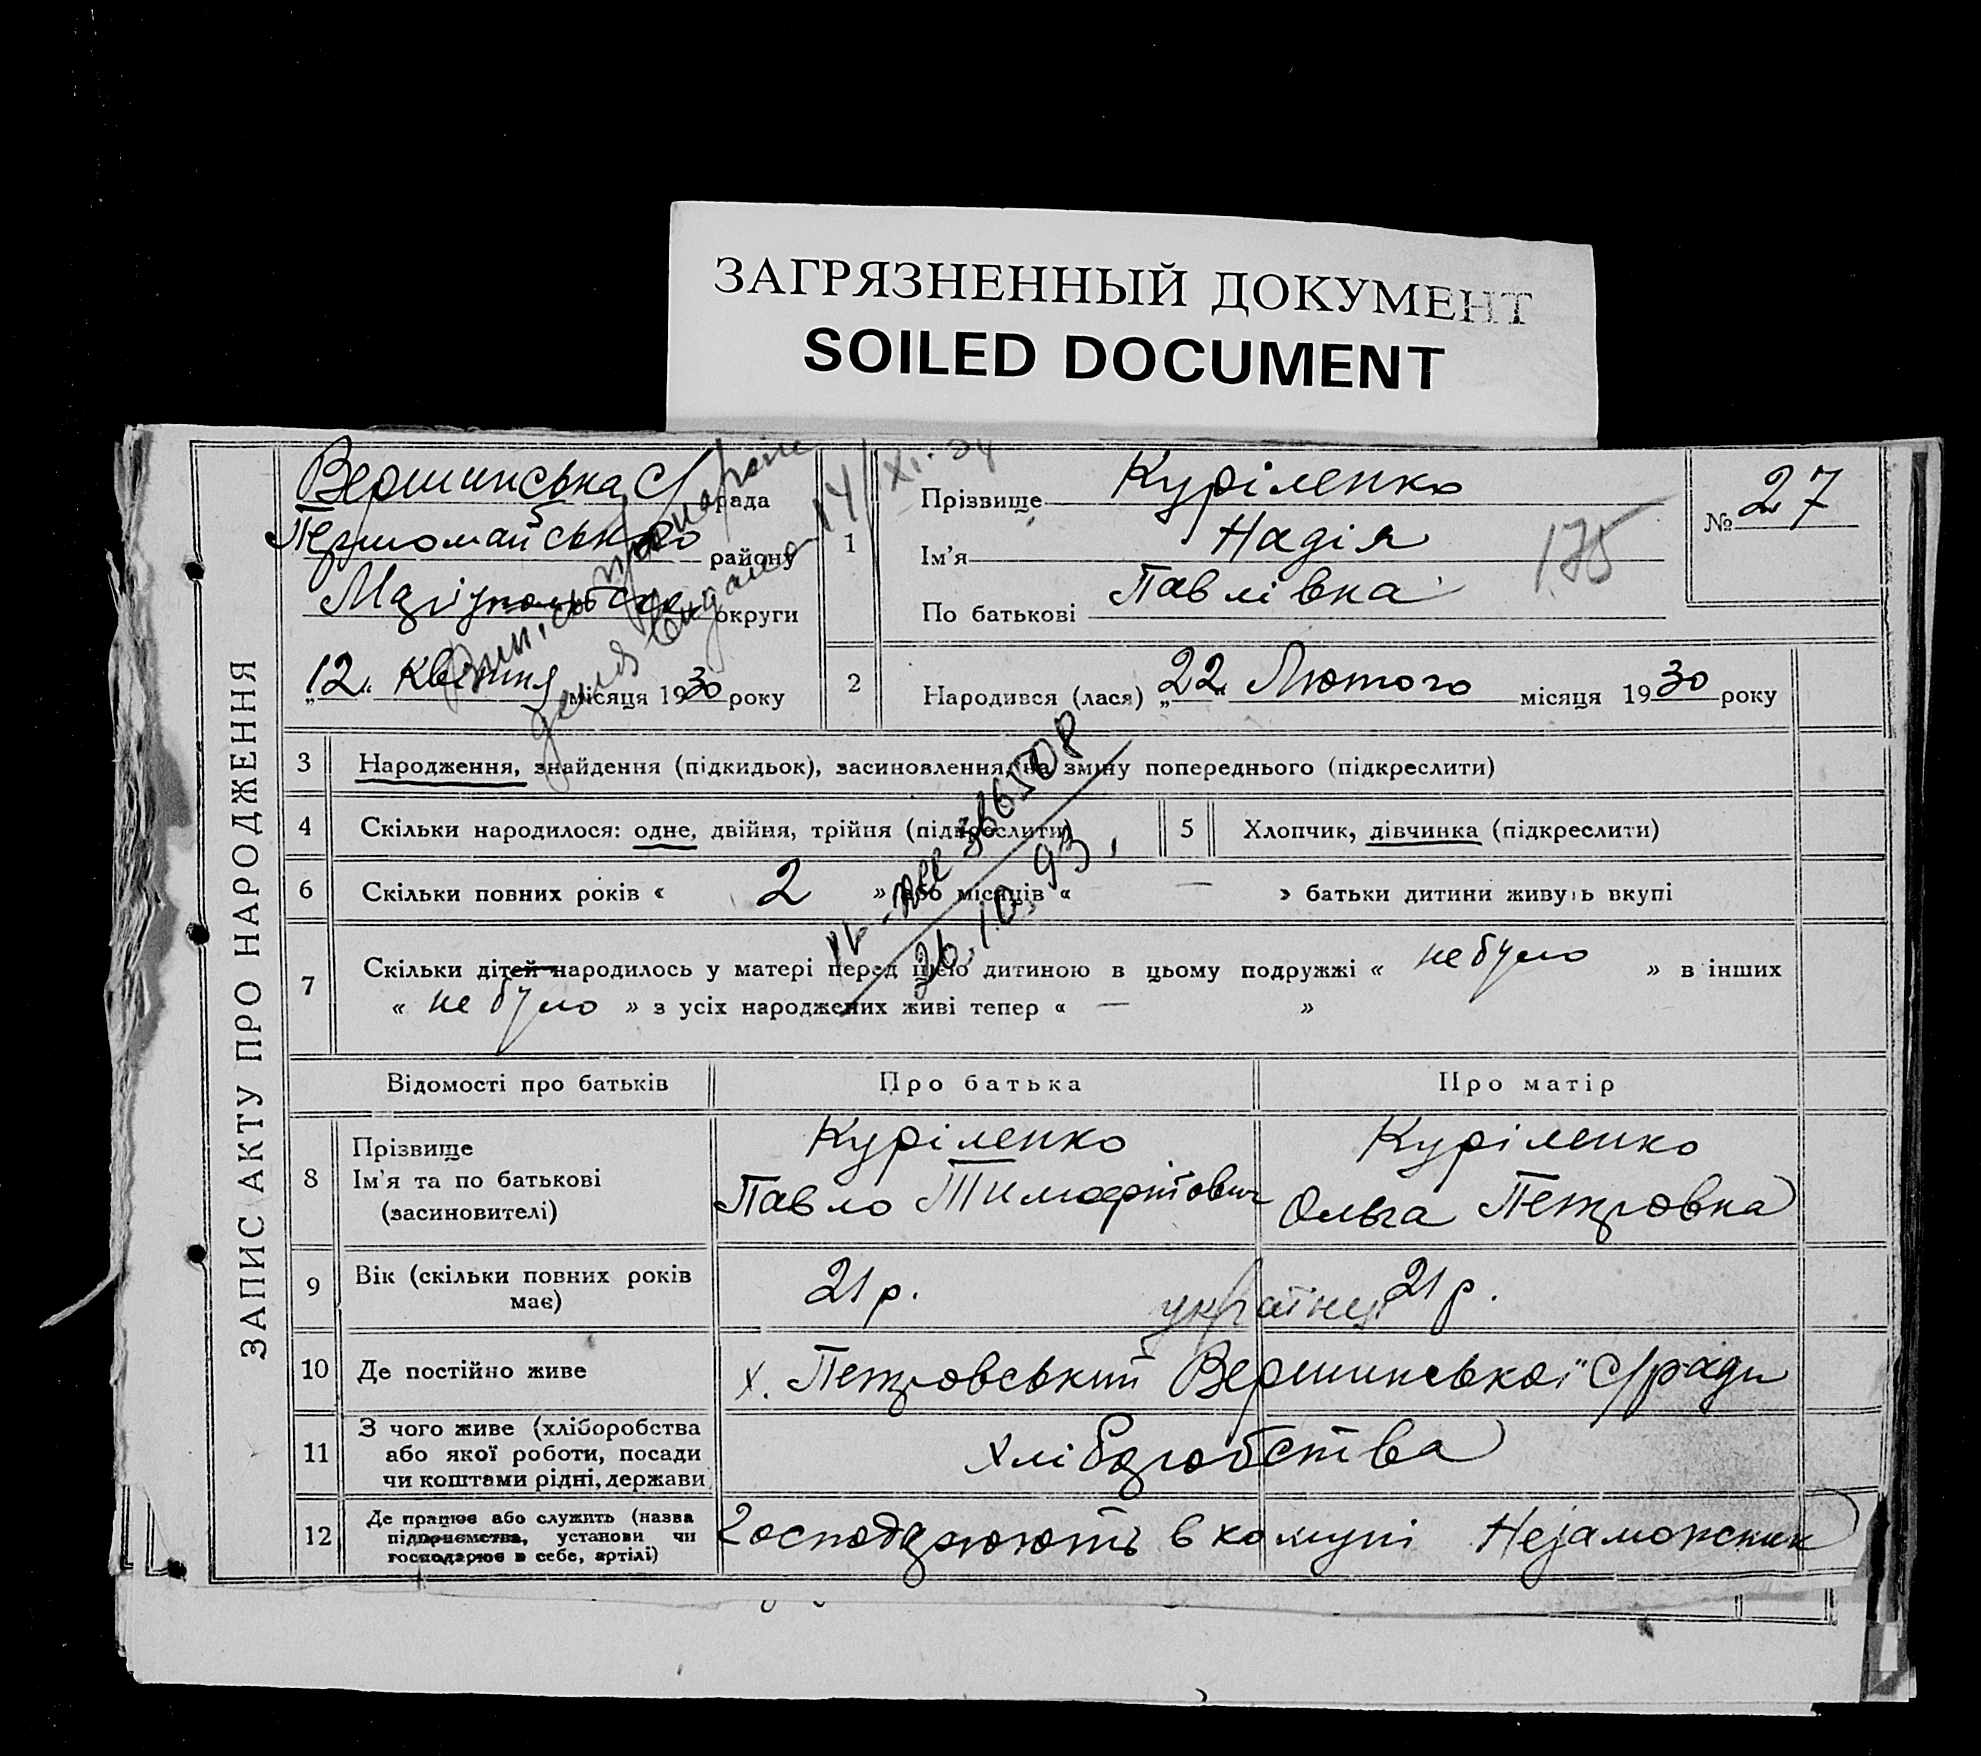 ЗАГРЯЗНЕННЫЙ ДОКУМЕНТ
SOILED DOCUMENT
ЗАПИС АКТУ ПРО НАРОДЖЕННЯ
Вершинська С/рада
Першомайського району
Маріупольської округи
„12“ Квітня місяця 1930 року
1
Прізвище Куріленко
Ім'я Надія
По батькові Павлівна
175
№ 27
14/XI-34
2
Народився (лася) „22“ Лютого місяця 1930 року
3 Народження, знайдення (підкидьок), засиновлення, на зміну попереднього (підкреслити)
4 Скільки народилося: одне, двійня, трійня (підкреслити)
5 Хлопчик, дівчинка (підкреслити)
366508
26.10.93
6 Скільки повних років « 2 » або місяців « — » батьки дитини живуть вкупі
7 Скільки дітей народилось у матері перед цією дитиною в цьому подружжі « не було » в інших
« не було » з усіх народжених живі тепер « — »
Відомості про батьків Про батька Про матір
8 Прізвище Куріленко Куріленко
Ім'я та по батькові Павло Тимофійович Ольга Петровна
(засиновителі)
9 Вік (скільки повних років має) 21 р. 21 р.
українці
10 Де постійно живе х. Петровський Вершинської С/ради
11 З чого живе (хліборобства
або якої роботи, посади
чи коштами рідні, держави
хліборобства
12 Де працює або служить (назва
підприємства, установи чи
господарює в себе, артілі)
Господарюють в комуні Незаможник